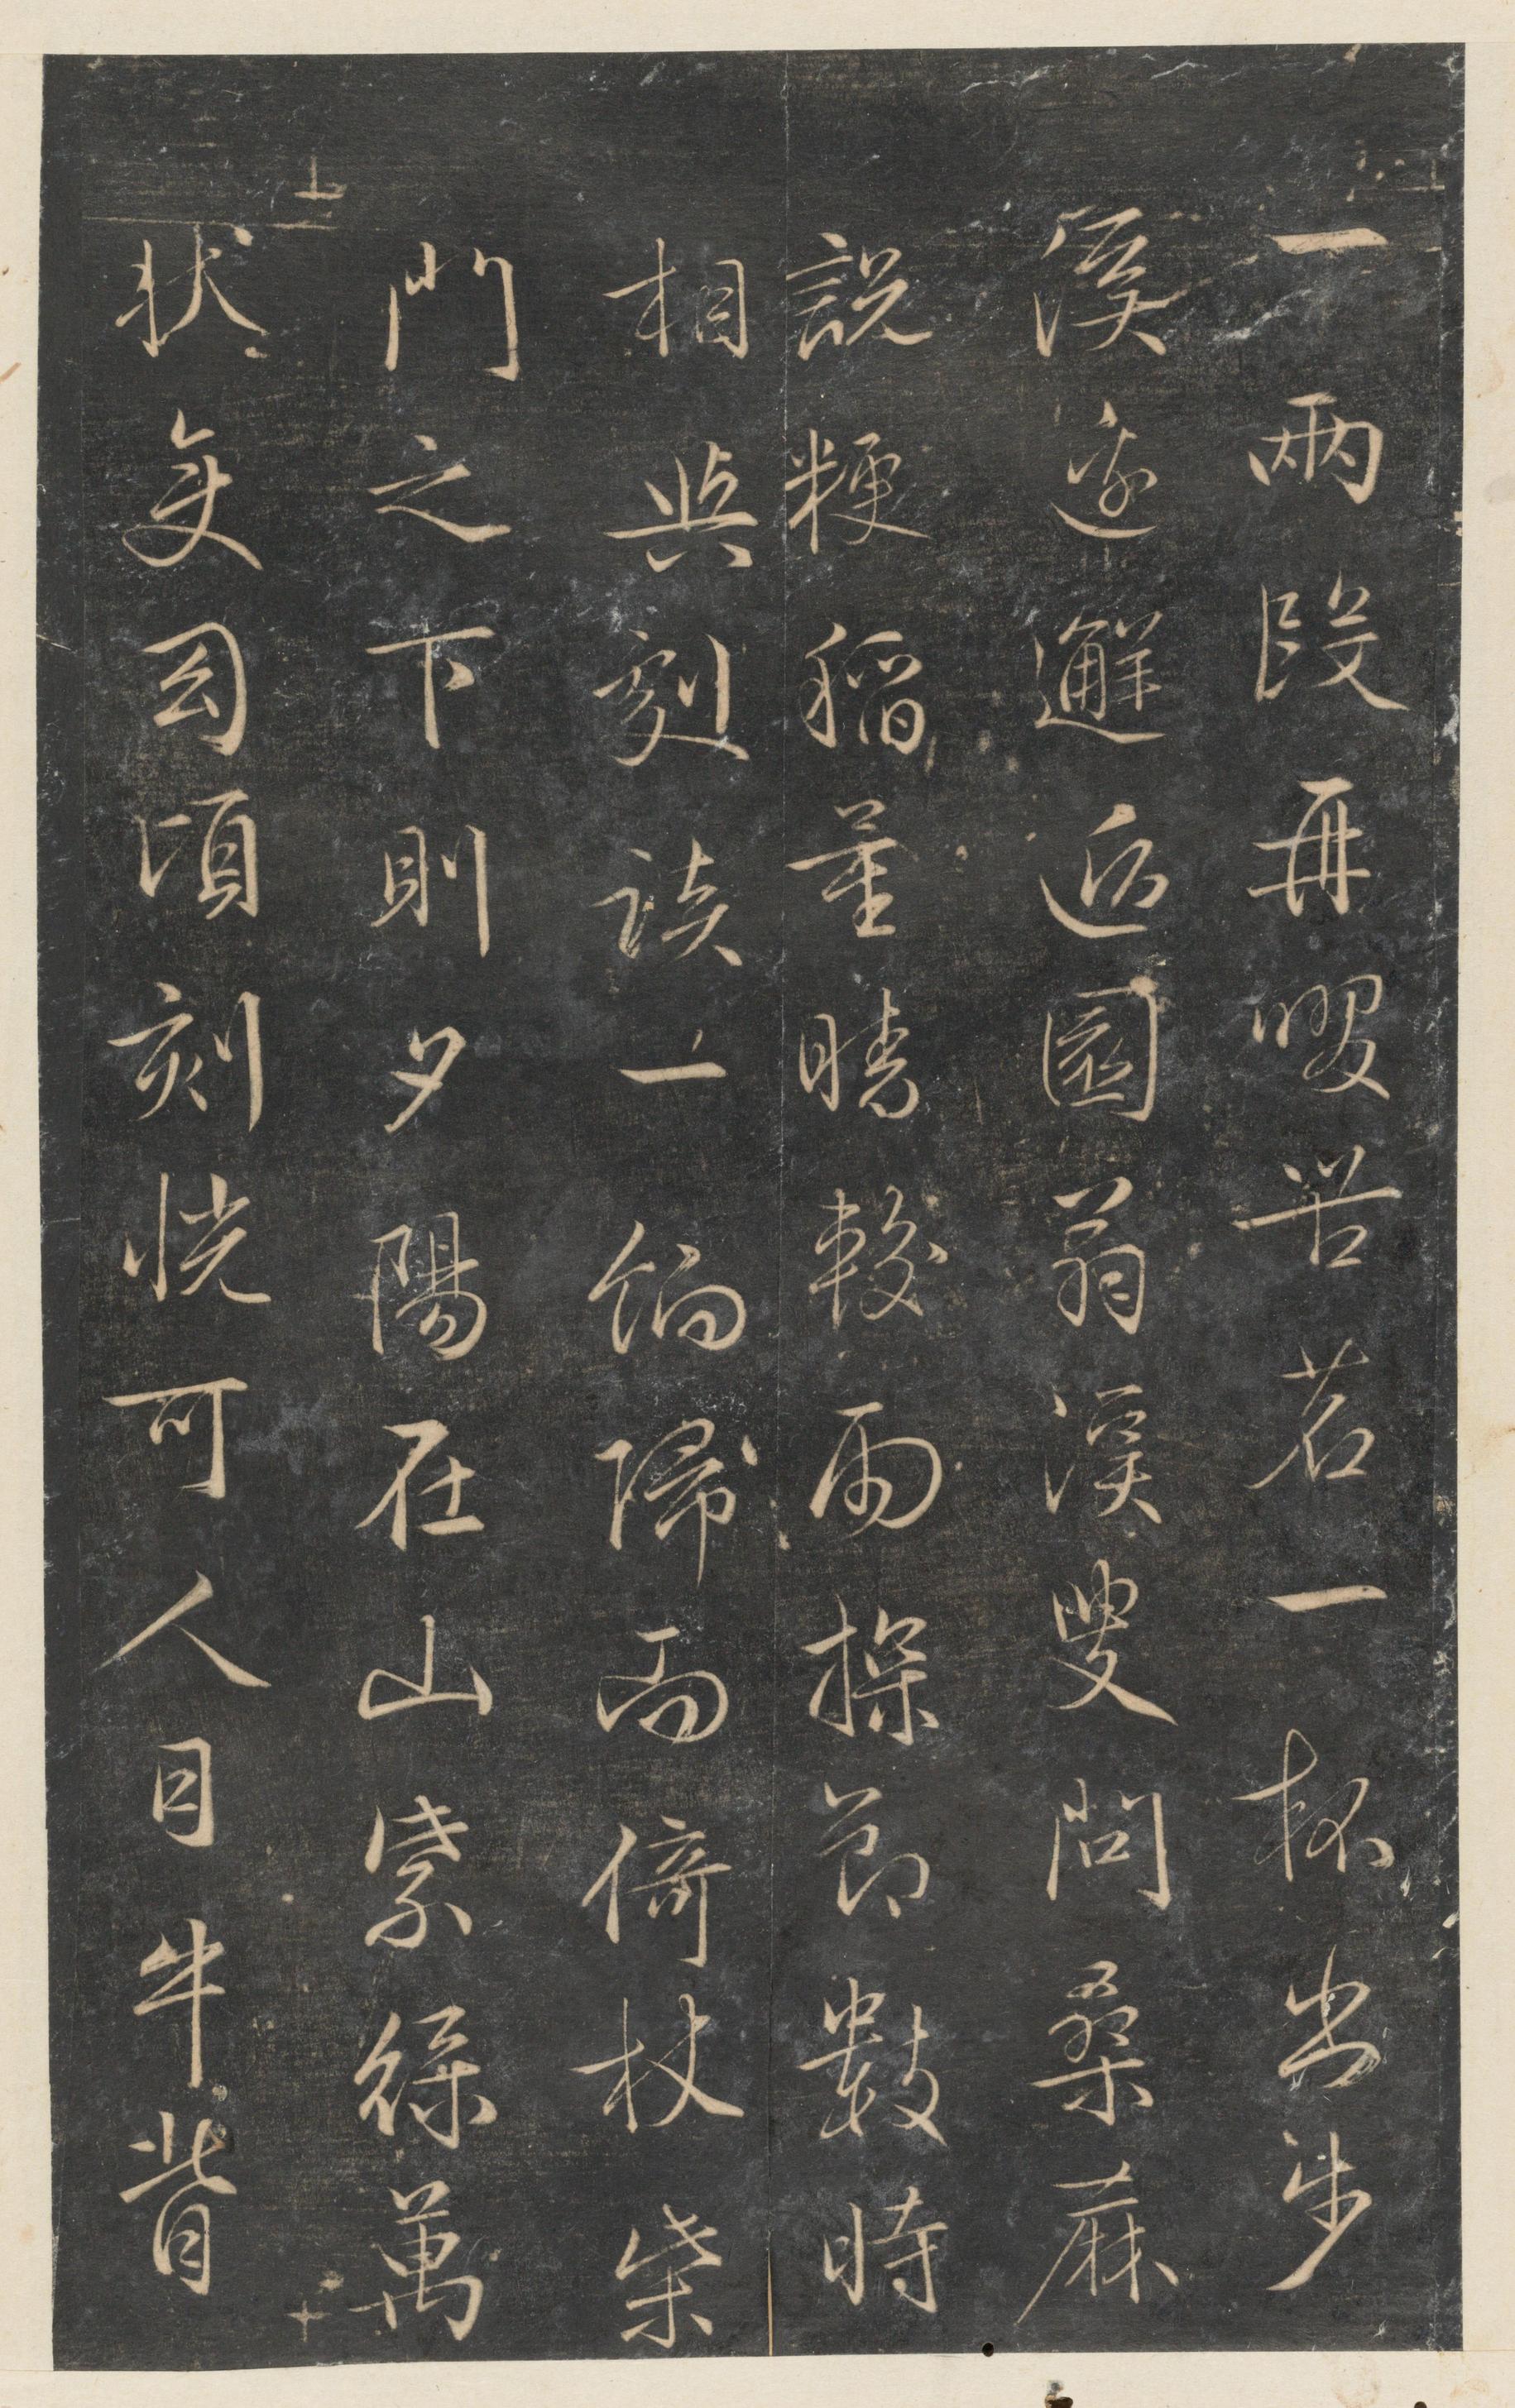 一兩段再啜苦茗一杯出步
溪邊邂逅園翁溪叟問桑麻
説粳稻量晴較雨探節數時
相與劇談一餉歸而倚杖柴
門之下則夕陽在山紫綠萬
狀變幻頃刻恍可人目牛背